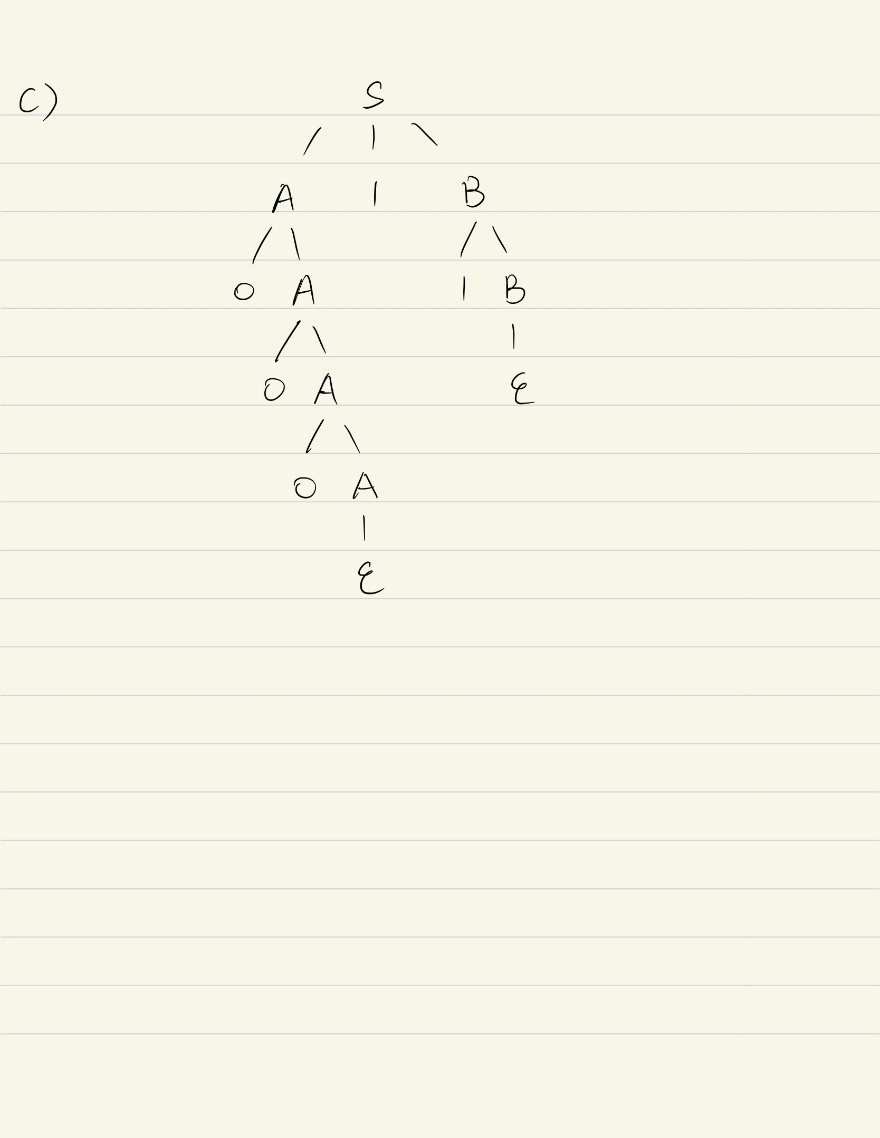 C) S
A 1 B
0 A 1 B
0 A ε
0 A
ε